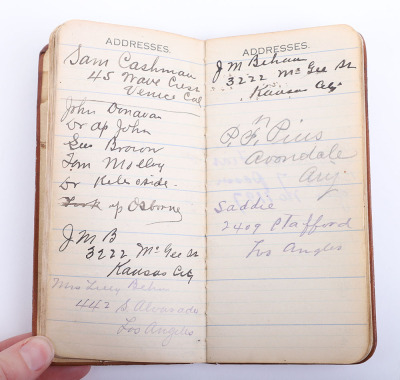 ADDRESSES.
Sam Cashman
45 Wave Crest
Venice Cal
John Donavan
Dr Ap John
Geo Brown
Tom Molloy
Dr
Look up Osborne
J M B
3222 Mc Gee St
Kansas City
Mrs Lucy Behan
442 S. Alvarado
Los Angeles.
ADDRESSES.
J M Behan
3222 Mc Gee St
Kansas City
P. F. Pius
Avondale
Saddie
2409 Stafford
Los Angles